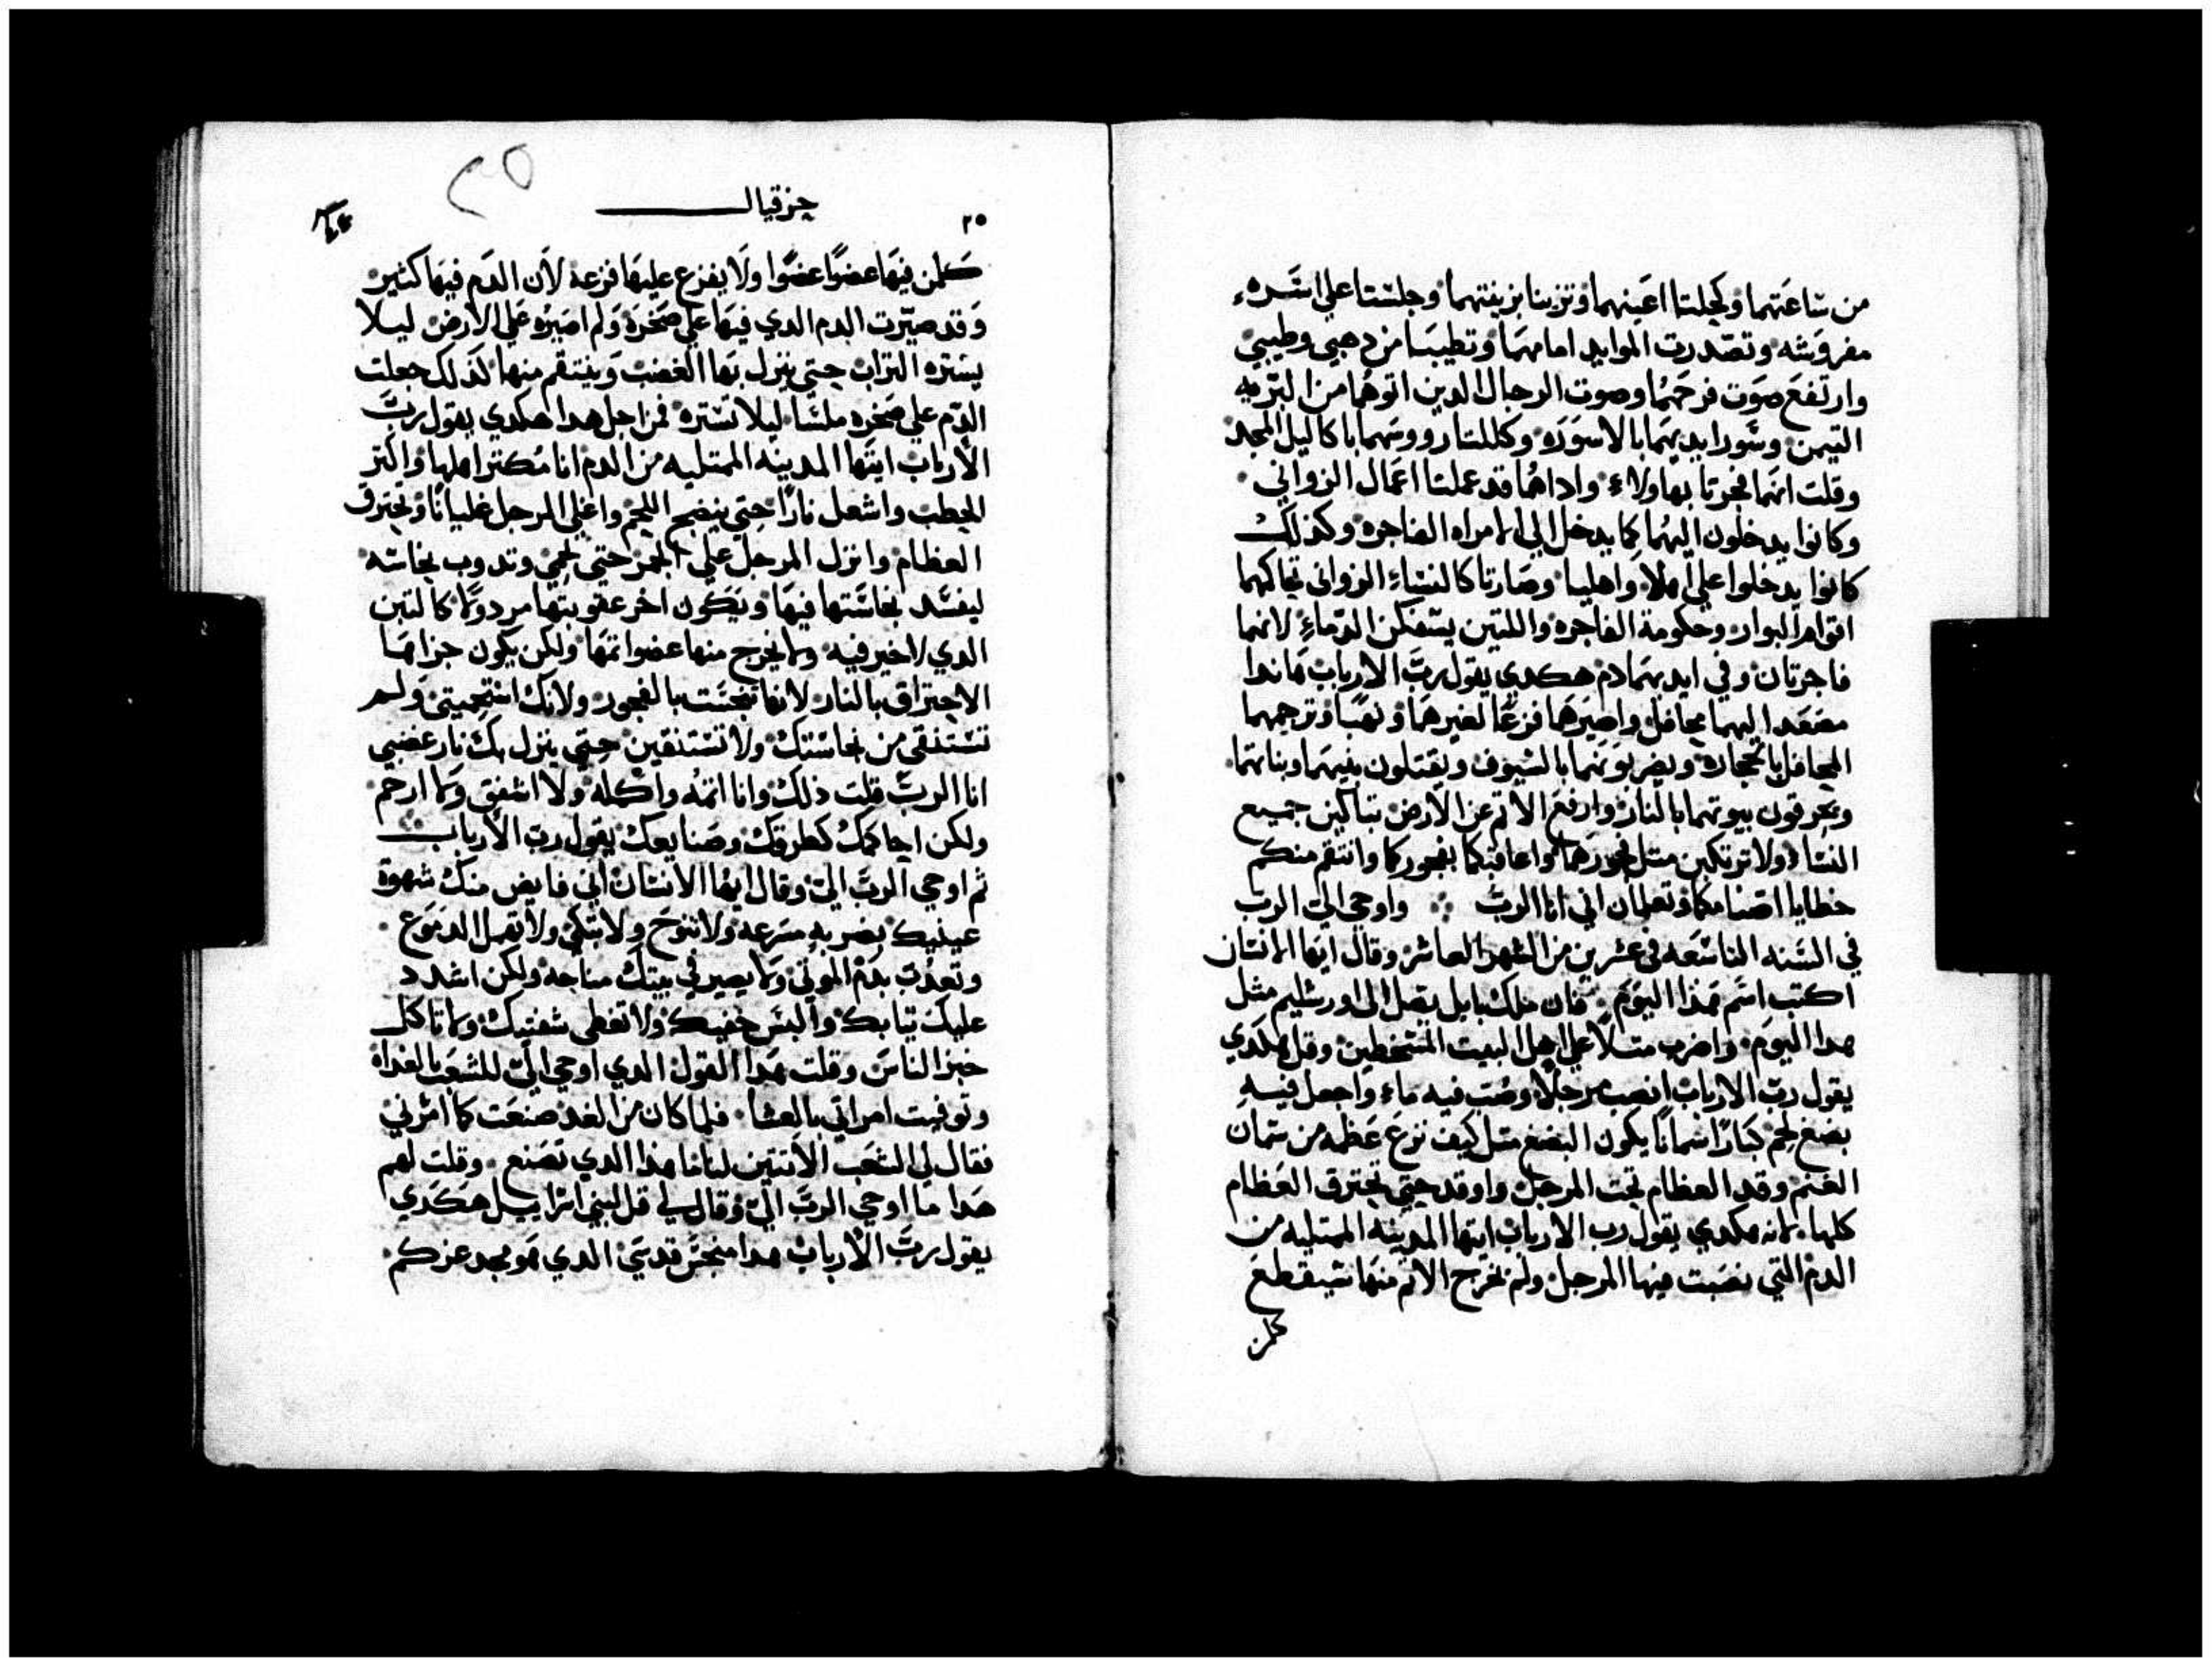 من ساعتهما وكحلتا اعينهما وتزينتا بزينتهما وجلستا علي اسَره
مفروشه وتصدرت الموايد امامهما وتطيبتا من دهني وطيبي
وارتفع صوت فرحهما وصوت الرجال الدين اتوهما من البريه
التيمن وسورا يديهما بالاسوره وكللتا رووسهما باكاليل المجد
وقلت انهما فجرتا بهاولاء واداهما قد عملتا اعمال الزواني
وكانوا يدخلون اليهما كما يدخل الي الامراه الفاجره وكذلك
كانوا يدخلوا علي اهلا واهليا وصارتا كالنساء الزواني تحاكهما
اقوام البوار وحكومة الفاجره واللتين يسفكن الدماء لانهما
فاجرتان وفي ايديهما دم هكدي يقول رب الارباب هاندا
مصعد اليهما محافل واصيرهما فزعًا لغيرهما ونهبًا وترجمهما
المحافل بالحجاره ويضربونهما بالسيوف ويقتلون بنيهما وبناتهما
ويحرقون بيوتهما بالنار وارفع الاتم عن الارض بتاكين جميع
النساء ولا ترتكبن متل فجورهما واعاقبكما بفجوركما وانتقم منكم
خطايا اصنامكما وتعلمان اني انا الربّ واوحي الي الرب
في السنه التاسعه في عشرين من الشهر العاشر وقال ايها الانسان
اكتب اسم هذا اليوم فان ملك بابل يصل الي اورشليم مثل
هدا اليوم واضرب متلاً علي اهل البيت المسخطين وقل هكدي
يقول ربّ الارباب انصب مرجلاً وصُب فيه ماء واجعل فيه
بضع لحم كبارًا سمانًا يكون البضع متل كيف نزع عَظمه من سمان
الغنم وقد العظام تحت المرجل واوقد حتي تحترق العظام
كلها لانه هكدي يقول رب الارباب ايتها المدينه الممتليه من
الدم التي نصبت فيها المرجل ولم يخرج الاتم منها شبقطع
كلمن
حزقيال
٢٥
٢٥
كلمن فيها عضوًا عضوًا ولا يفزع عليها فزعه لان الدم فيها كتير
وقد صيّرت الدم الدي فيها علي صخره ولم اصيره علي الارض ليلا
يستره التراب حتي ينزل بها الغضب وينتقم منها لذلك جعلت
الدّم علي صخره ملسَا ليلا تستره فمن اجل هدا هكدي يقول ربّ
الارباب ايتها المدينه الممتليه من الدم انا مُكتر اهلها واكتر
الحطب واشعل نارًا حتي ينضج اللحم واغلي المرجل غليانًا وتحترق
العظام وانزل المرجل علي الجمر حتي يحمي وتدوب نحاسه
ليفسد نحاستها فيها ويكون اخر عقوبتها مردولا كالتبن
الدي لاخير فيه ولا يخرج منها عضوا تمها ولكن يكون جزاها
الاحتراق بالنار لانها تنجست بالفجور ولانك استحميتي ولم
تستنقي من نجاستك ولا تستنقين حتي ينزل بك نار غضبي
انا الربّ قلت ذلك وانا اتمه واكمله ولا اشفق ولا ارحم
ولكن احاكمك كطرقك وصنايعك يقول رب الارباب
ثم اوحي الربّ اليّ وقال ايها الانسان اني قابض منك شهوة
عينيك بضربه مسرعه ولا تنوح ولا تبكي ولا تهمل الدموع
وتعدّب بدم الموتي ولا يصير في بيتك مناحه ولكن اشدد
عليك تيابك والبس خفيك ولا تغطي شفتيك ولا تاكل
خبز الناس وقلت هدا القول الدي اوحي اليّ للشعب بالغداه
وتوفيت امراتي بالعشا فلما كان من الغد صنعت كما امرني
فقال لي الشعب الا تتبين لنا ما هدا الدي تصنع وقلت لهم
هدا ما اوحي الربّ اليّ وقال لي قل لبني اسراييل هكدي
يقول ربّ الارباب هدا منجس قدسي الدي هو مجد عزكم